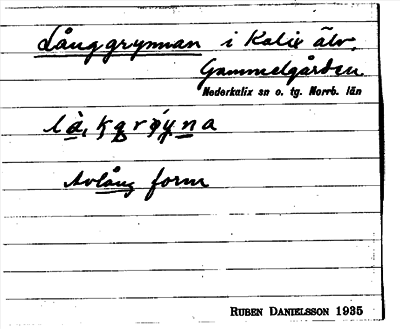 Långgrynnan i Kalix älv.
Gammelgården
Nederkalix sn o. tg. Norrb. län
Avlång form
RUBEN DANIELSSON 1935